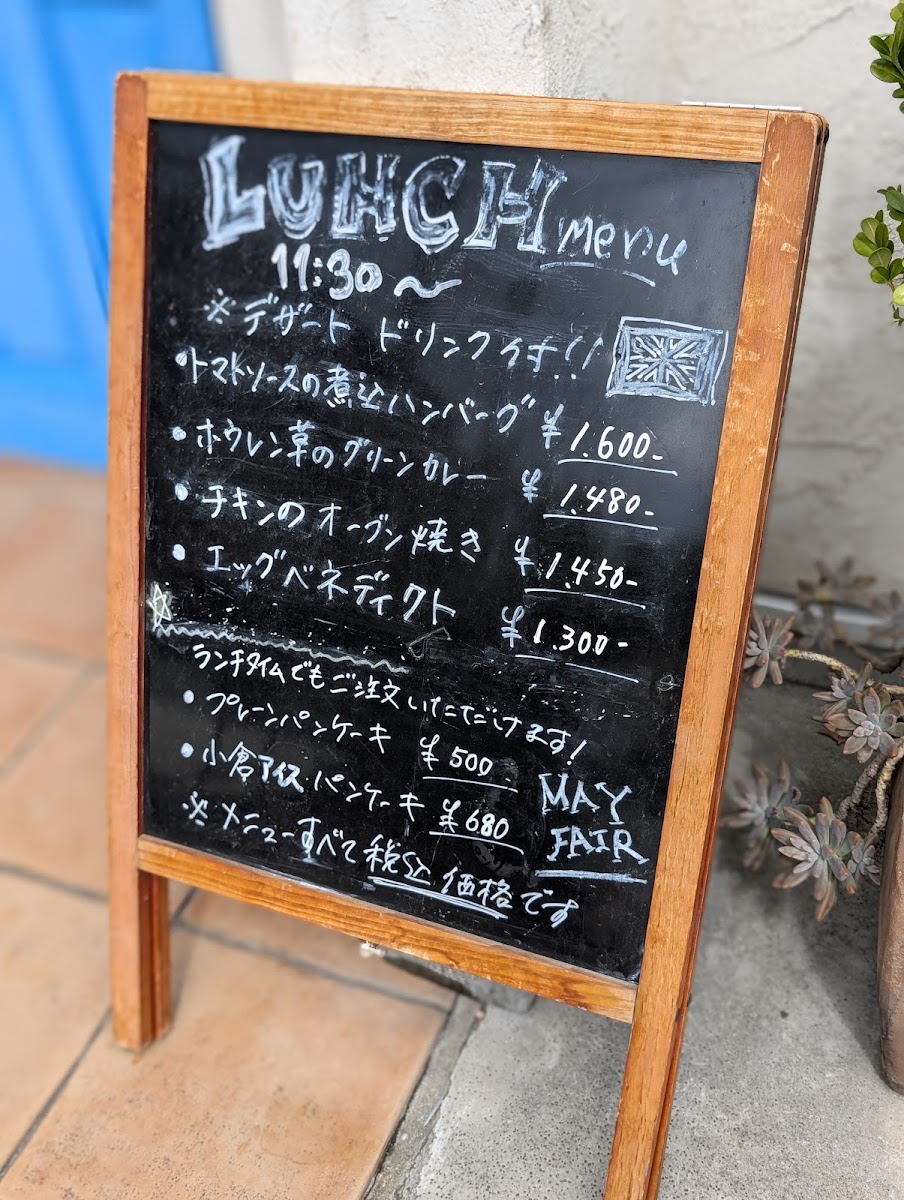 LUNCH menu
11:30～
※デザート ドリンク付す!!
•トマトソースの煮込ハンバーグ ¥1.600-
•ホウレン草のグリーンカレー ¥1.480-
•チキンのオーブン焼き ¥1.450-
•エッグベネディクト ¥1.300-
ランチタイムでもご注文いただけます!
•プレーンパンケーキ ¥500
•小倉アイスパンケーキ ¥680
※メニューすべて税込価格です
MAY
FAIR